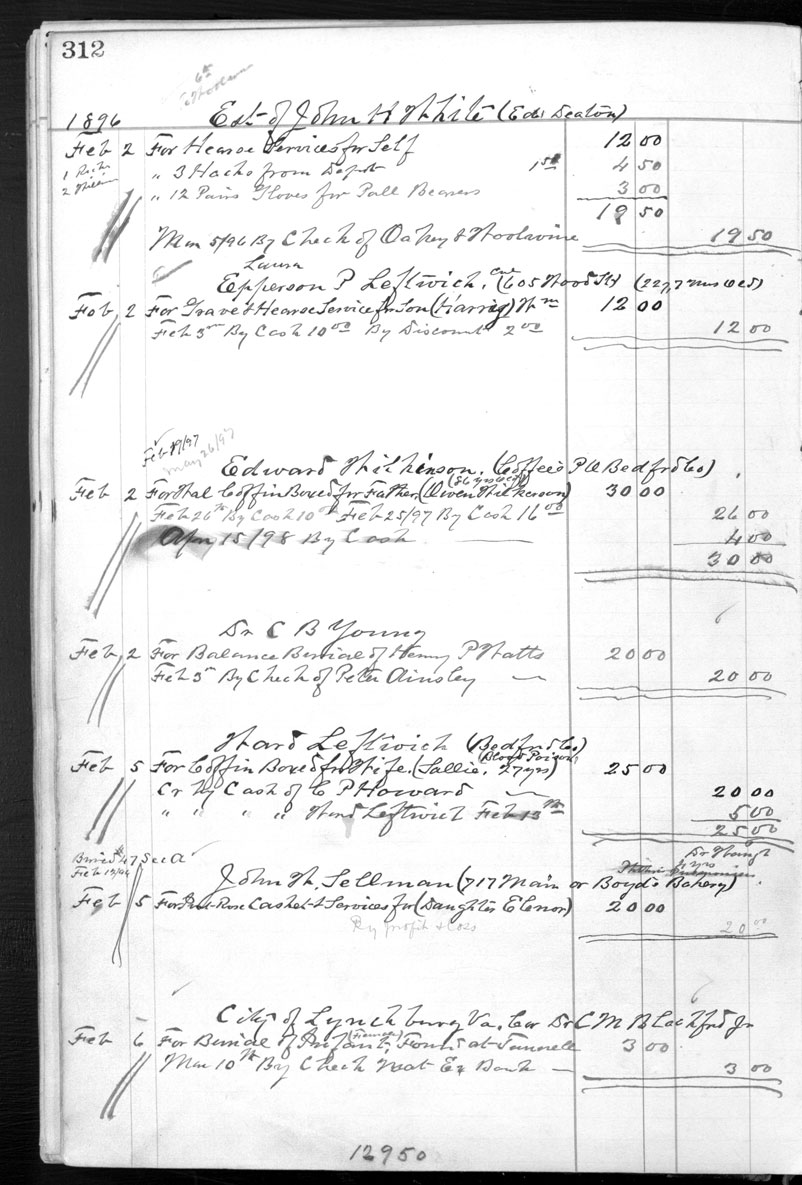 312
1896 Est of John H White (Eds Deaton)
Feb 2 For Hearse Services for Self 12 00
" 3 Hacks from Depot 1 50 4 50
" 12 Pairs Gloves for Pall Bearers 3 00
19 50
Mar 5/96 By Check of Oakey & Woolwine 19 50
Laura
Epperson P Leftwich, (605 Wood St)
Feb 2 For Grave & Hearse Service for Son (Harry) 12 00
Feb 3 By Cash 10 00 By Discount 2 00 12 00
Feb 19/97
May 26/97
Edward Wilkinson. (Coffee's P O Bedford Co)
(86 yrs
Feb 2 For Wal Coffin Boxed for Father (Owen Wilkerson) 30 00
Feb 26th By Cash 10 00 Feb 25/97 By Cash 16 00 26 00
Apr 15/98 By Cash 4 00
30 00
Dr C B Young
Feb 2 For Balance Burial of Henry P Watts 20 00
Feb 3 By Check of Peter Ainsley 20 00
Ward Leftwich (Bedford Co)
(Blood Poison)
Feb 5 For Coffin Boxed for Wife. (Sallie, 27 yrs) 25 00
Cr by Cash of C P Howard 20 00
" " " " Ward Leftwich Feb 13th 5 00
25 00
Buried #47 Sec A
Feb
John W. Tellman (717 Main or Boyd's Bakery)
Feb 5 For Casket & Services for (Daughter Elenor) 20 00
By profit & Loss 20 00
City of Lynchburg Va, Care Dr C M Blackford Jr
(Female)
Feb 6 For Burial of Infant, Found at Tunnell 3 00
Mar 10th By Check Nat Ex Bank 3 00
129 50